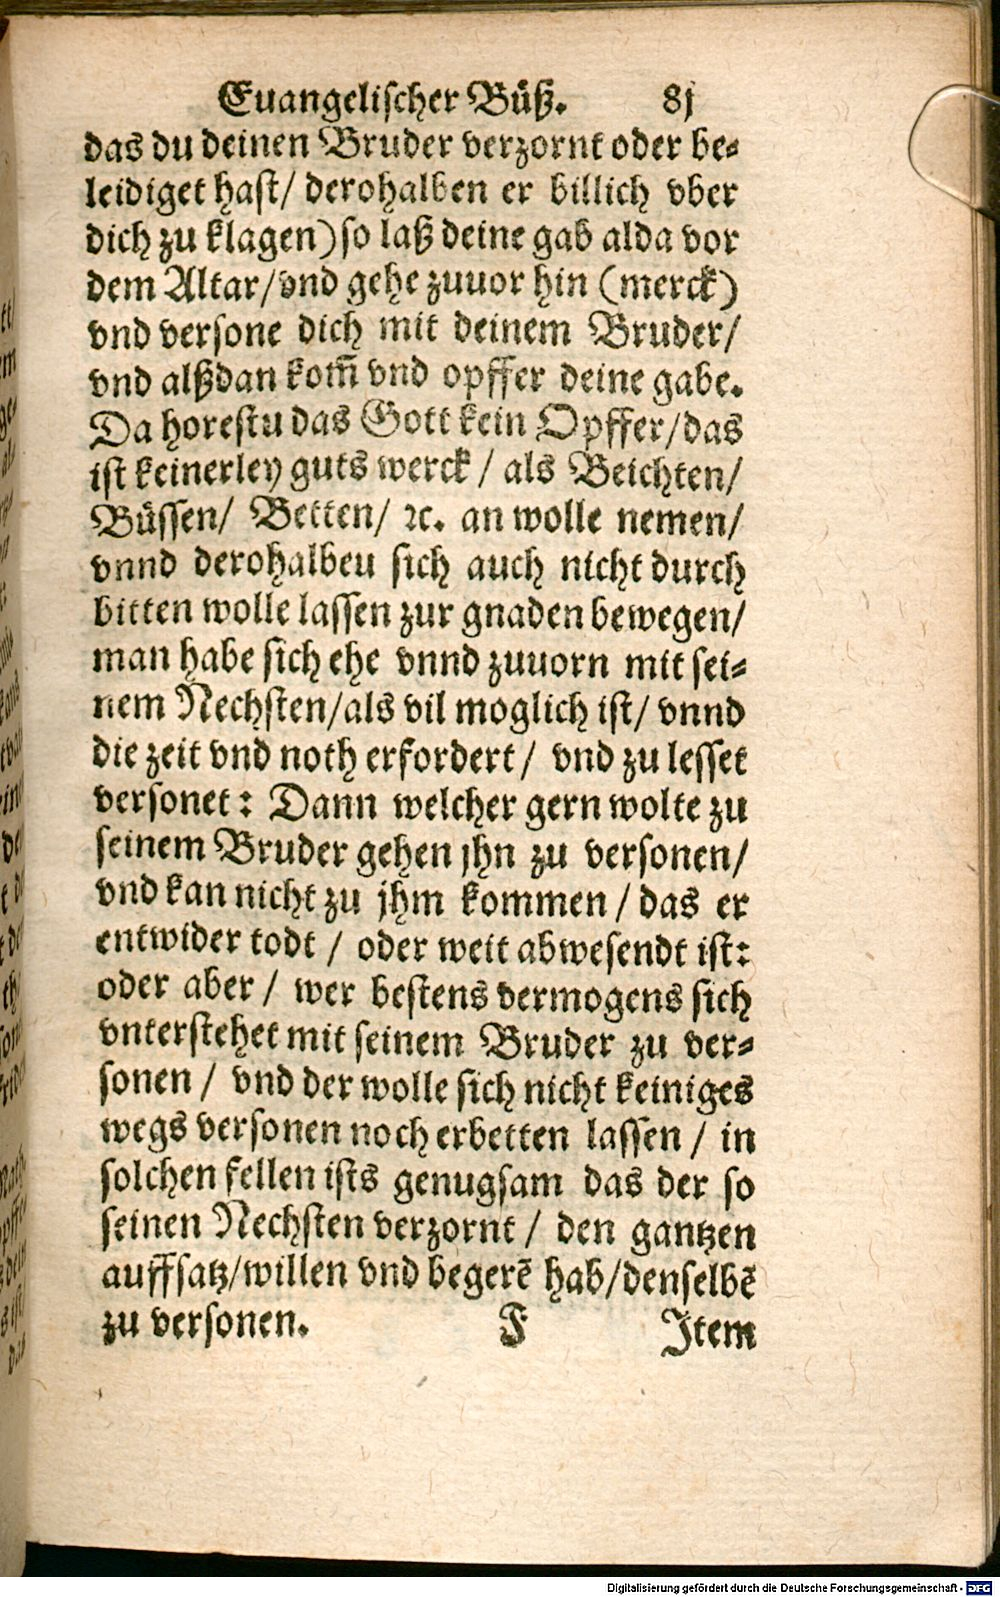 Euangelischer Buͤß. 8j
das du deinen Bruder verzornt oder be-
leidiget hast/ derohalben er billich vber
dich zu klagen) so laß deine gab alda vor
dem Altar/vnd gehe zuuor hin (merck)
vnd versone dich mit deinem Bruder/
vnd alßdan kom̃ vnd opffer deine gabe.
Da horestu das Gott kein Opffer/das
ist keinerley guts werck / als Beichten/
Buͤssen/ Betten/ ꝛc. an wolle nemen/
vnnd derohalbeu sich auch nicht durch
bitten wolle lassen zur gnaden bewegen/
man habe sich ehe vnnd zuuorn mit sei-
nem Nechsten/als vil moglich ist/ vnnd
die zeit vnd noth erfordert / vnd zu lesset
versonet: Dann welcher gern wolte zu
seinem Bruder gehen jhn zu versonen/
vnd kan nicht zu jhm kommen / das er
entwider todt / oder weit abwesendt ist:
oder aber / wer bestens vermogens sich
vnterstehet mit seinem Bruder zu ver-
sonen / vnd der wolle sich nicht keiniges
wegs versonen noch erbetten lassen / in
solchen fellen ists genugsam das der so
seinen Nechsten verzornt / den gantzen
auffsatz/willen vnd begerẽ hab/denselbẽ
zu versonen. F Item
Digitalisierung gefördert durch die Deutsche Forschungsgemeinschaft - DFG